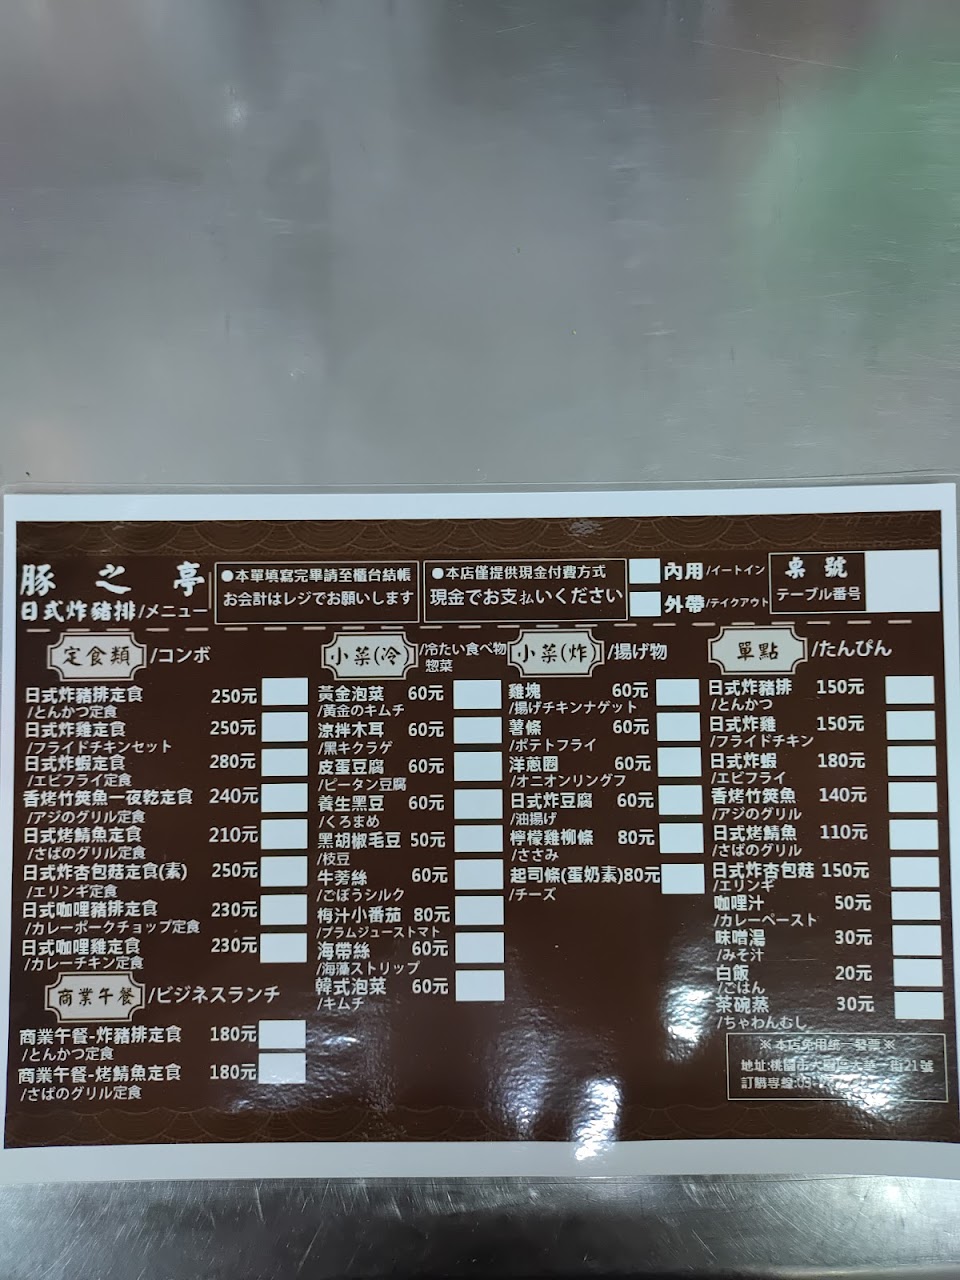 豚之亭
日式炸豬排/メニュー
●本單填寫完畢請至櫃台結帳
お会計はレジでお願いします
●本店僅提供現金付費方式
現金でお支払いください
內用/イートイン
外帶/テイクアウト
桌號
テーブル番号
定食類/コンボ
日式炸豬排定食 250元
/とんかつ定食
日式炸雞定食 250元
/フライドチキンセット
日式炸蝦定食 280元
/エビフライ定食
香烤竹筴魚一夜乾定食 240元
/アジのグリル定食
日式烤鯖魚定食 210元
/さばのグリル定食
日式炸杏包菇定食(素) 250元
/エリンギ定食
日式咖哩豬排定食 230元
/カレーポークチョップ定食
日式咖哩雞定食 230元
/カレーチキン定食
商業午餐/ビジネスランチ
商業午餐-炸豬排定食 180元
/とんかつ定食
商業午餐-烤鯖魚定食 180元
/さばのグリル定食
小菜(冷)/冷たい食べ物
惣菜
黃金泡菜 60元
/黃金のキムチ
涼拌木耳 60元
/黑キクラゲ
皮蛋豆腐 60元
/ピータン豆腐
養生黑豆 60元
/くろまめ
黑胡椒毛豆 50元
/枝豆
牛蒡絲 60元
/ごぼうシルク
梅汁小番茄 80元
/プラムジューストマト
海帶絲 60元
/海藻ストリップ
韓式泡菜 60元
/キムチ
小菜(炸)/揚げ物
雞塊 60元
/揚げチキンナゲット
薯條 60元
/ポテトフライ
洋蔥圈 60元
/オニオンリングフ
日式炸豆腐 60元
/油揚げ
檸檬雞柳條 80元
/ささみ
起司條(蛋奶素)80元
/チーズ
單點/たんぴん
日式炸豬排 150元
/とんかつ
日式炸雞 150元
/フライドチキン
日式炸蝦 180元
/エビフライ
香烤竹筴魚 140元
/アジのグリル
日式烤鯖魚 110元
/さばのグリル
日式炸杏包菇 150元
/エリンギ
咖哩汁 50元
/カレーペースト
味噌湯 30元
/みそ汁
白飯 20元
/ごはん
茶碗蒸 30元
/ちゃわんむし
※本店免用統一發票※
地址:桃園市大園區大華一街21號
訂購專線:03